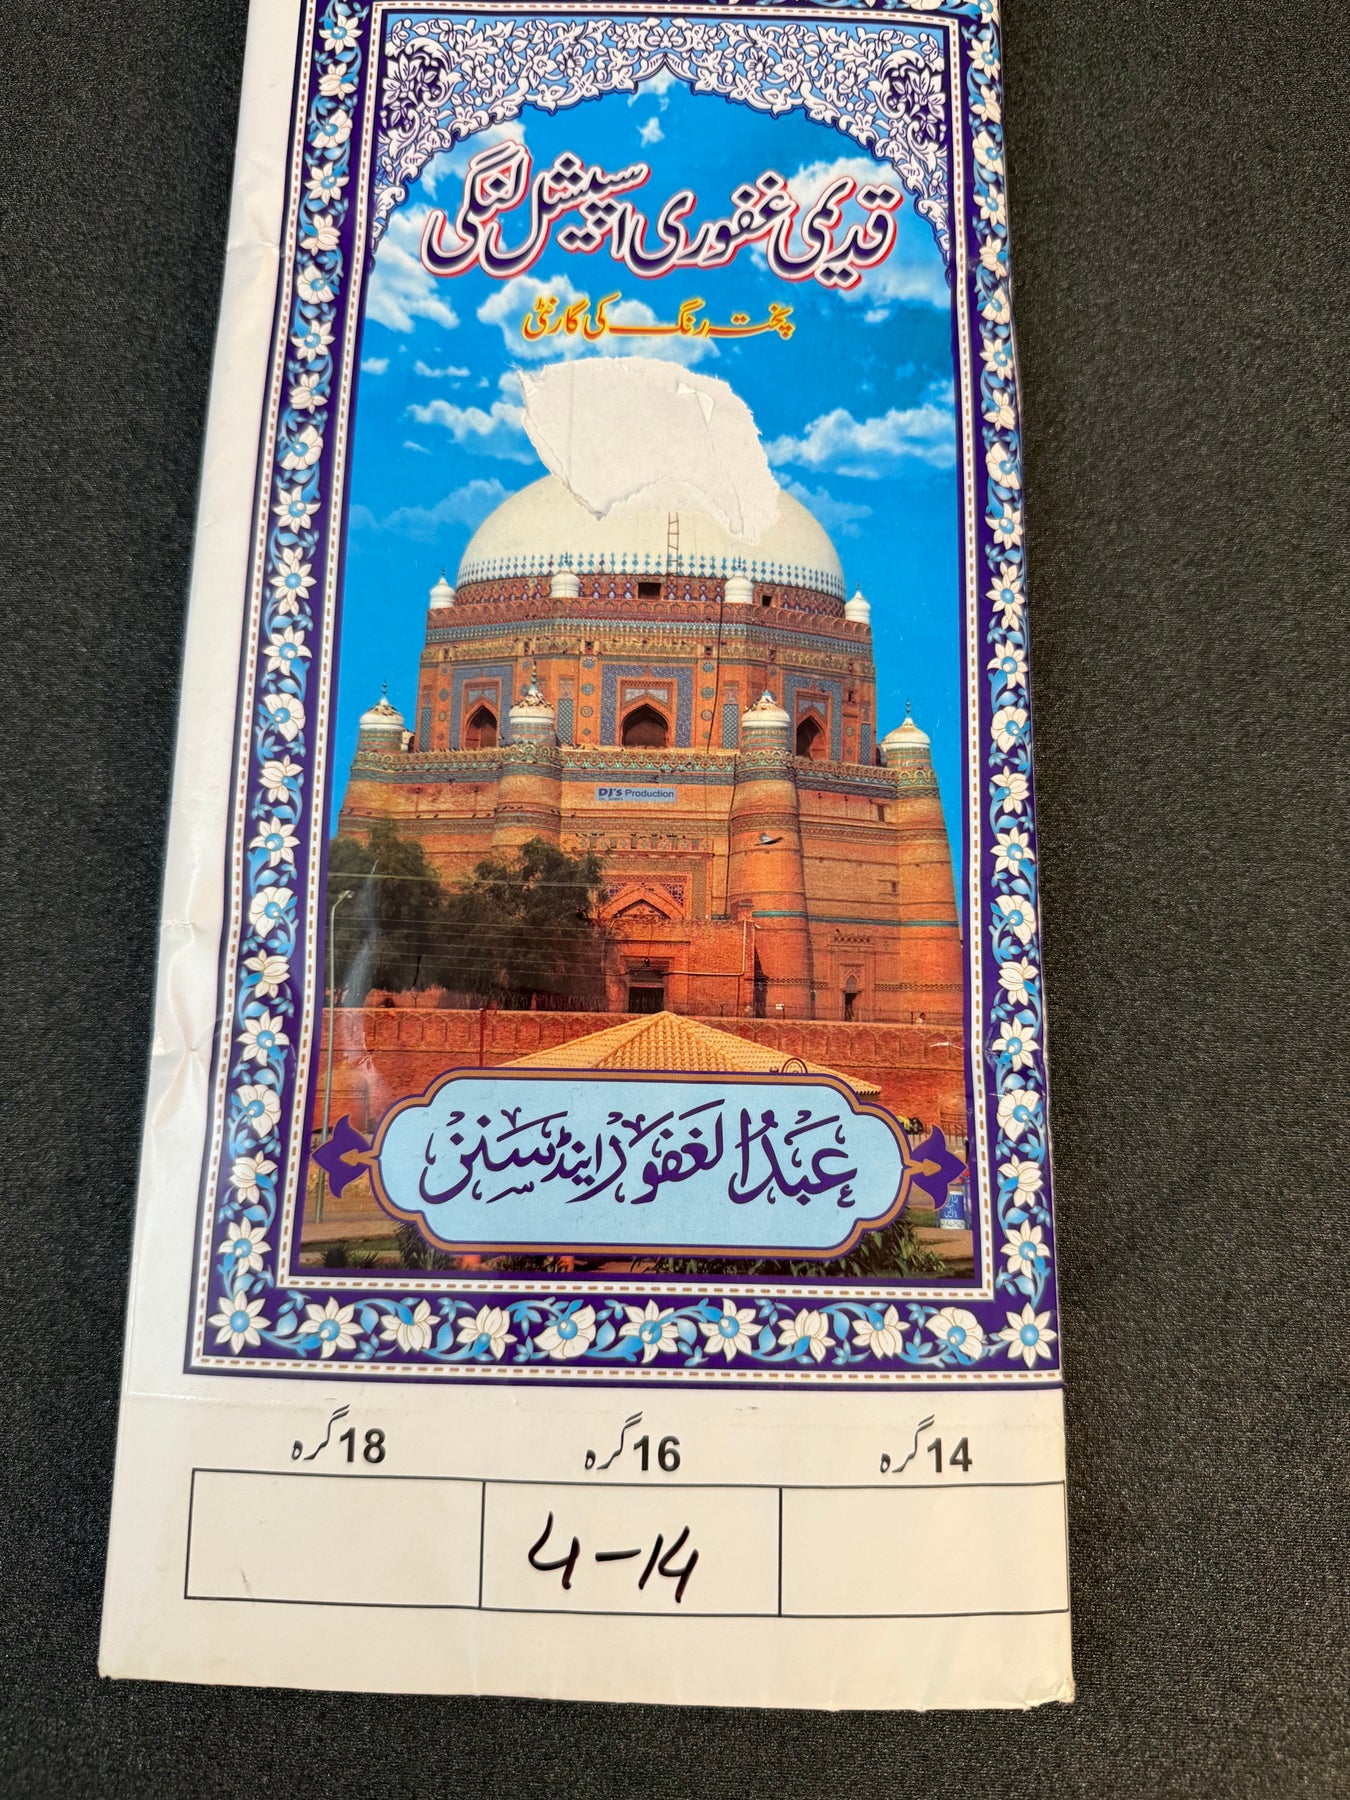 قدیمی غفوری اسپیشل لنگی
پختہ رنگ کی گارنٹی
DJ's Production
عبدالغفور اینڈ سنز
14گرہ 16گرہ 18گرہ
4-14